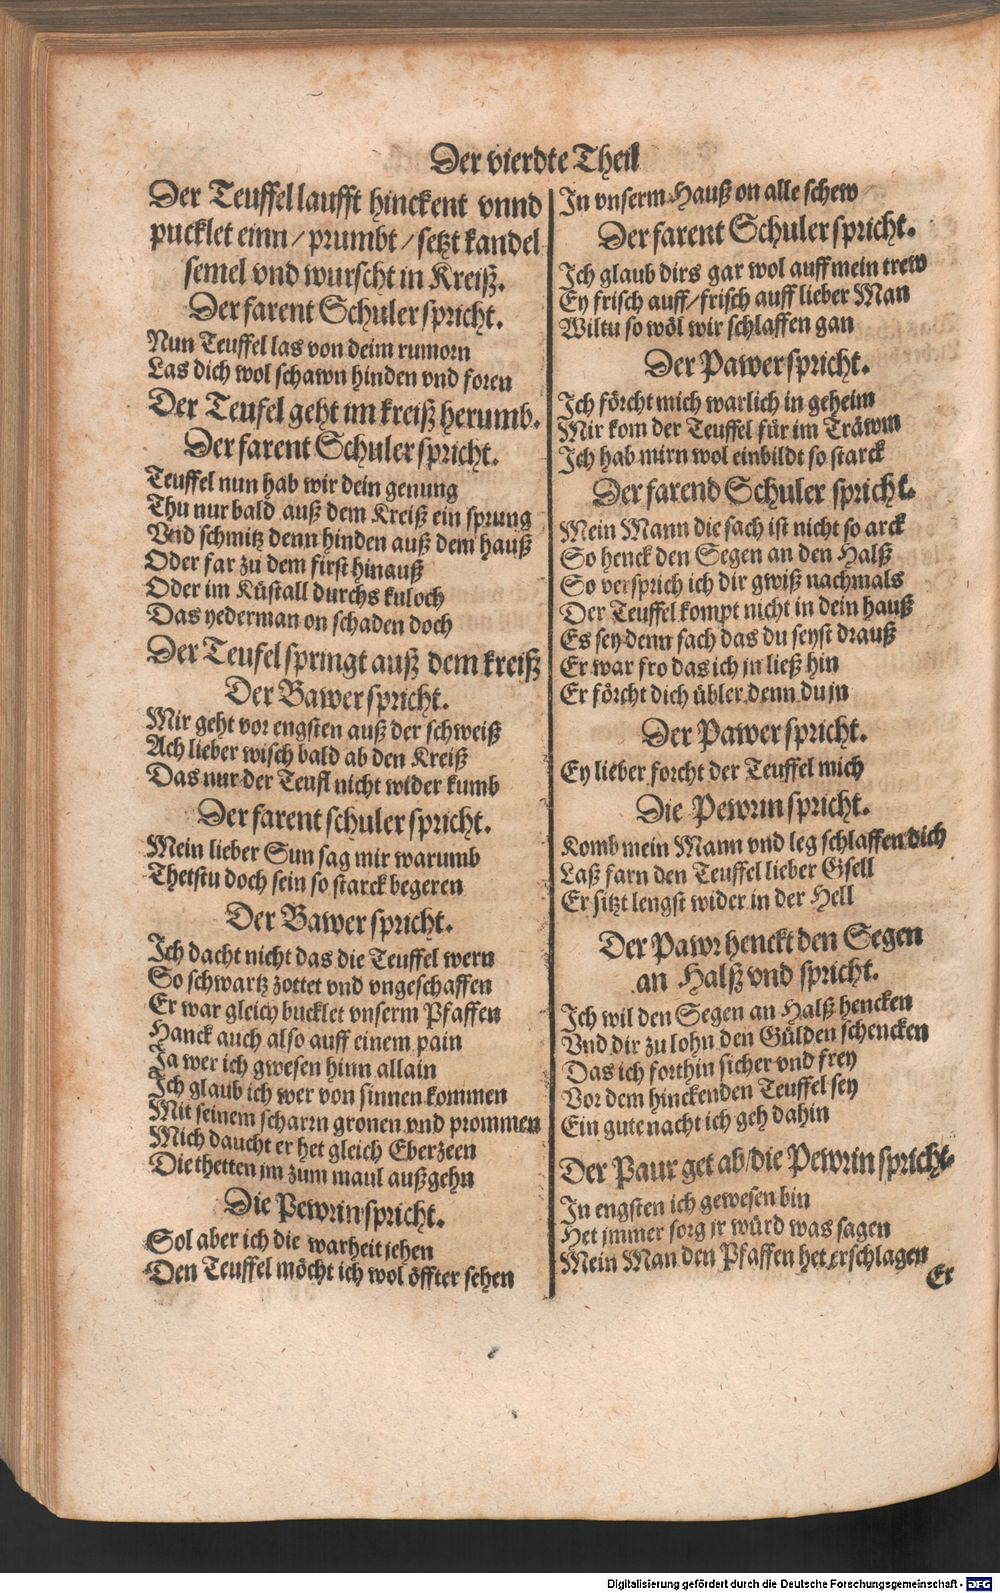 Der vierdte Theil
Der Teuffel laufft hinckent vnnd
pucklet einn / prumbt / setzt kandel
semel vnd wurscht in Kreiß.
Der farent Schuler spricht.
Nun Teuffel las von deim rumorn
Las dich wol schawn hinden vnd foren
Der Teufel geht im kreiß herumb.
Der farent Schuler spricht.
Teuffel nun hab wir dein genung
Thu nur bald auß dem Kreiß ein sprung
Vnd schmitz denn hinden auß dem hauß
Oder far zu dem first hinauß
Oder im Küstall durchs kuloch
Das yederman on schaden doch
Der Teufel springt auß dem kreiß
Der Bawer spricht.
Mir geht vor engsten auß der schweiß
Ach lieber wisch bald ab den Kreiß
Das nur der Teufl nicht wider kumb
Der farent schuler spricht.
Mein lieber Sun sag mir warumb
Thetstu doch sein so starck begeren
Der Bawer spricht.
Ich dacht nicht das die Teuffel wern
So schwartz zottet vnd vngeschaffen
Er war gleich bucklet vnserm Pfaffen
Hanck auch also auff einem pain
Ja wer ich gwesen hinn allain
Ich glaub ich wer von sinnen kommen
Mit seinem scharrn gronen vnd prommen
Mich daucht er het gleich Eberzeen
Die thetten jm zum maul außgehn
Die Pewrin spricht.
Sol aber ich die warheit jehen
Den Teuffel möcht ich wol öffter sehen
In vnserm Hauß on alle schew
Der farent Schuler spricht.
Ich glaub dirs gar wol auff mein trew
Ey frisch auff / frisch auff lieber Man
Wiltu so wöl wir schlaffen gan
Der Pawer spricht.
Ich förcht mich warlich in geheim
Mir kom der Teuffel für im Träwm
Ich hab mirn wol einbildt so starck
Der farend Schuler spricht.
Mein Mann die sach ist nicht so arck
So henck den Segen an den Halß
So versprich ich dir gwiß nachmals
Der Teuffel kompt nicht in dein hauß
Es sey denn sach das du seyst drauß
Er war fro das ich jn ließ hin
Er förcht dich übler denn du jn
Der Pawer spricht.
Ey lieber forcht der Teuffel mich
Die Pewrin spricht.
Komb mein Mann vnd leg schlaffen dich
Laß farn den Teuffel lieber Gsell
Er sitzt lengst wider in der Hell
Der Pawr henckt den Segen
an Halß vnd spricht.
Ich wil den Segen an Halß hencken
Vnd dir zu lohn den Gülden schencken
Das ich forthin sicher vnd frey
Vor dem hinckenden Teuffel sey
Ein gute nacht ich geh dahin
Der Paur get ab / die Pewrin spricht.
In engsten ich gewesen bin
Het jmmer sorg jr würd was sagen
Mein Man den Pfaffen het erschlagen
Er
Digitalisierung gefördert durch die Deutsche Forschungsgemeinschaft - DFG